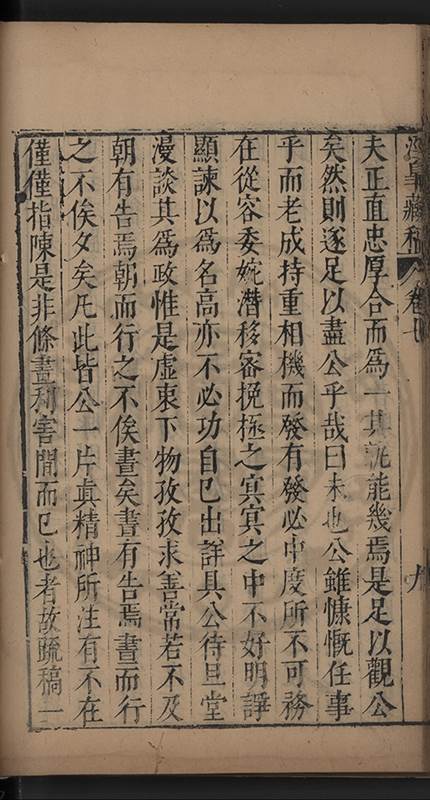 涇皋藏稿 卷七 九
夫正直忠厚合而爲一其孰能幾焉是足以觀公
矣然則遂足以盡公乎哉曰未也公雖慷慨任事
乎而老成持重相機而發有發必中度所不可務
在從容委婉潛移審挽極之冥冥之中不好明諍
顯諫以爲名高亦不必功自巳出詳具公待旦堂
漫談其爲政惟是虛衷下物孜孜求善常若不及
朝有告焉朝而行之不俟晝矣晝有告焉晝而行
之不俟夕矣凡此皆公一片眞精神所注有不在
僅僅指陳是非條晝利害間而巳也者故疏稿一